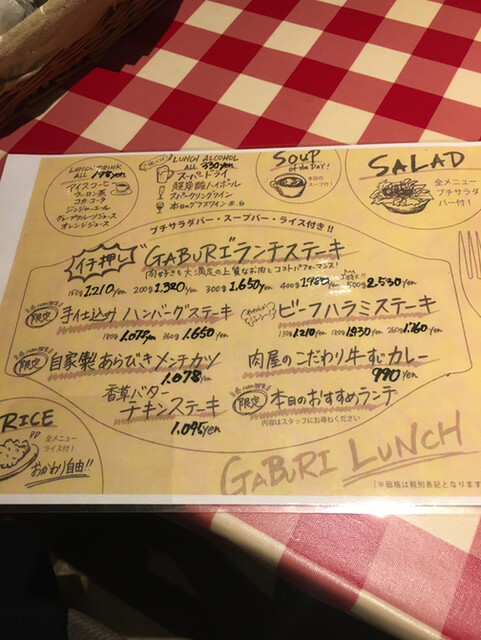 LUNCH DRINK
ALL 198yen
アイスコーヒー
ウーロン茶
コカ・コーラ
ジンジャーエール
グレープフルーツジュース
オレンジジュース
LUNCH ALCOHOL
ALL 330yen
スーパードライ
超炭酸ハイボール
スパークリングワイン
本日のグラスワイン 赤・白
SOUP
of the DAY!
本日の
スープ付!
SALAD
全メニュー
プチサラダ
バー付!
プチサラダバー・スープバー・ライス付き!!
イチ押し
"GABURI"ランチステーキ
肉好きも大満足の上質なお肉とコストパフォーマンス!
150g 1.210yen 200g 1.320yen 300g 1.650yen 400g 1.980yen 500g 2.530yen
限定
手仕込みハンバーグステーキ
180g 1.078yen 360g 1.650yen
ビーフハラミステーキ
130g 1.210yen 180g 1.430yen 260g 1.760yen
限定
自家製あらびきメンチカツ
1.078yen
肉屋のこだわり牛すじカレー
990yen
香草バター
チキンステーキ
1.096yen
限定
本日のおすすめランチ
内容はスタッフにお尋ねください
RICE
全メニュー
ライス付!
おかわり自由!!
GABURI LUNCH
[※価格は税別表記となります